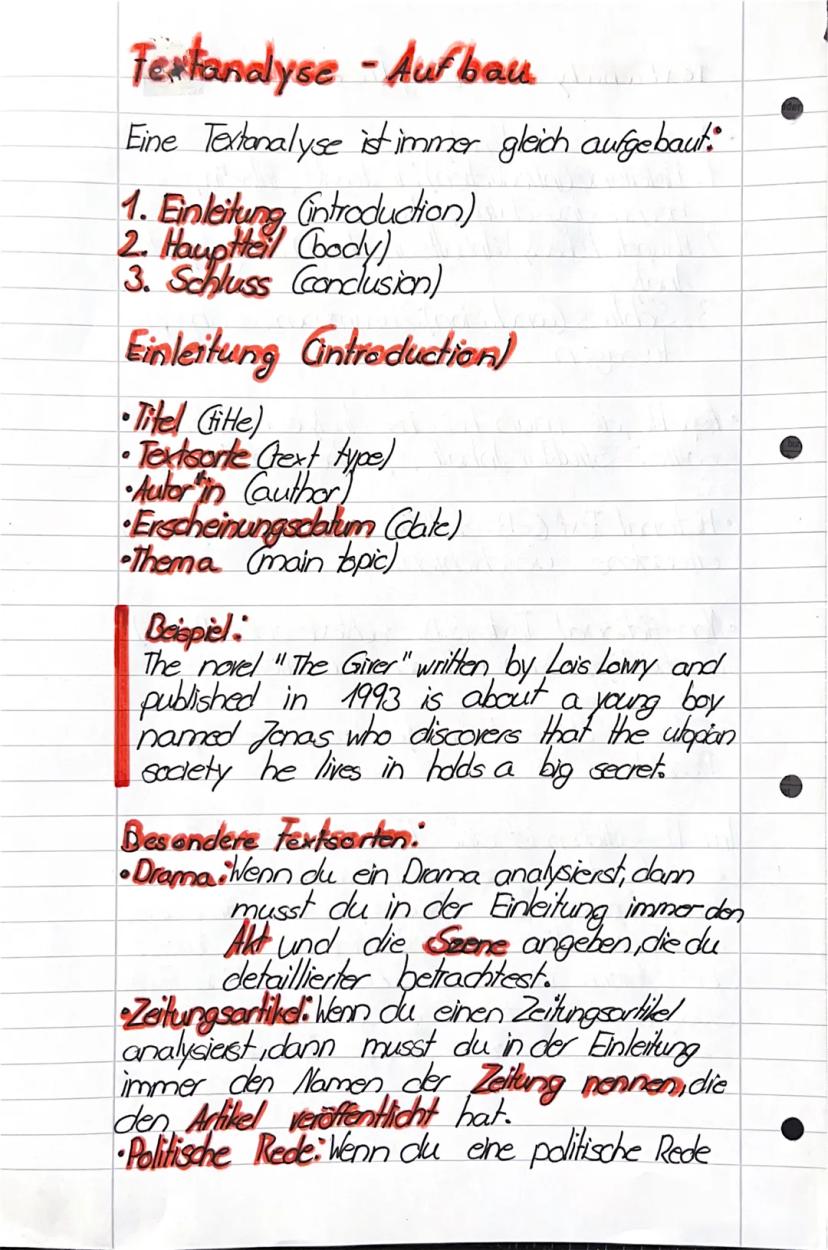 Textanalyse - Aufbau
Eine Textanalyse ist immer gleich aufgebaut:
1. Einleitung (introduction)
2. Hauptteil (body)
3. Schluss (conclusion)
Einleitung (introduction)
• Titel (title)
• Textsorte (text type)
• Autor*in (author)
• Erscheinungsdatum (date)
• Thema (main topic)
Beispiel:
The novel "The Giver" written by Lois Lowry and
published in 1993 is about a young boy
named Jonas who discovers that the utopian
society he lives in holds a big secret.
Besondere Textsorten:
• Drama: Wenn du ein Drama analysierst, dann
musst du in der Einleitung immer den
Akt und die Szene angeben, die du
detaillierter betrachtest.
• Zeitungsartikel: Wenn du einen Zeitungsartikel
analysierst, dann musst du in der Einleitung
immer den Namen der Zeitung nennen, die
den Artikel veröffentlicht hat.
• Politische Rede: Wenn du eine politische Rede